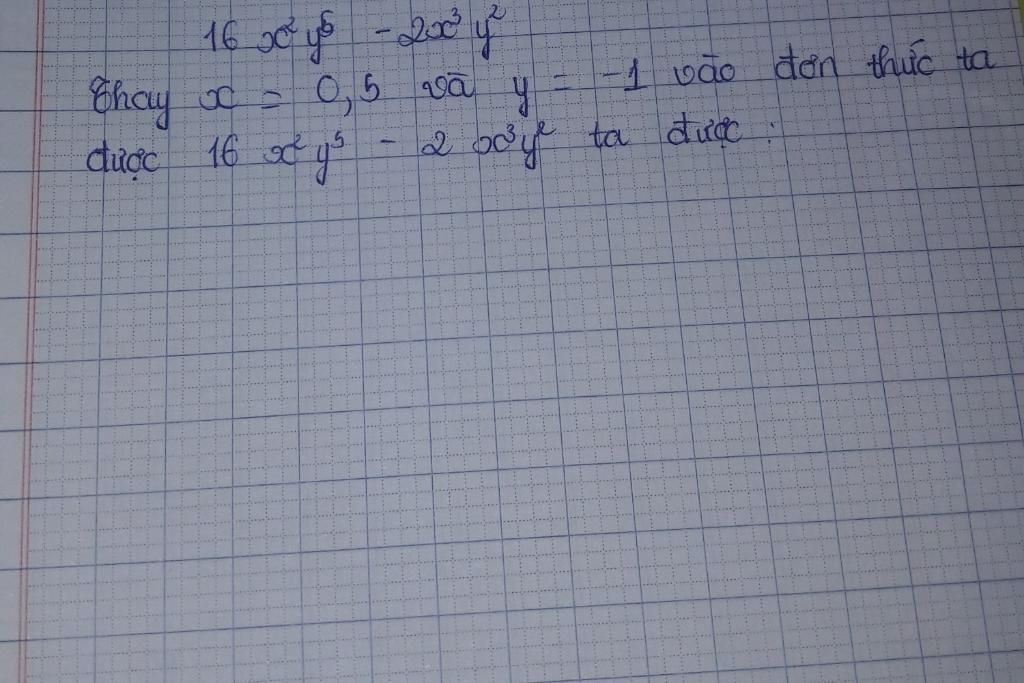 16 x² y⁵ - 2x³ y²
Thay x = 0,5 và y = -1 vào đơn thức ta
được 16 x² y⁵ - 2 x³y² ta được :